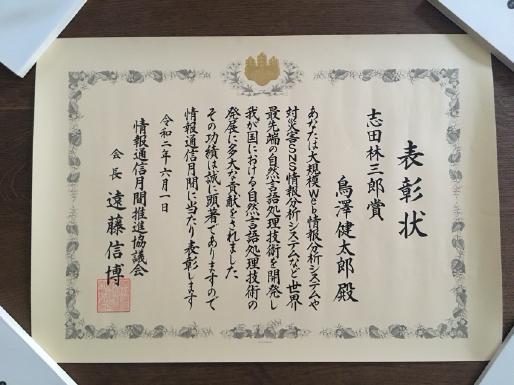 表彰状
志田林三郎賞
鳥澤健太郎 殿
あなたは大規模Web情報分析システムや
対災害SNS情報分析システムなど世界
最先端の自然言語処理技術を開発し
我が国における自然言語処理技術の
発展に多大な貢献をされました
その功績は誠に顕著でありますので
情報通信月間に当たり表彰します
令和二年六月一日
情報通信月間推進協議会
会長 遠藤信博